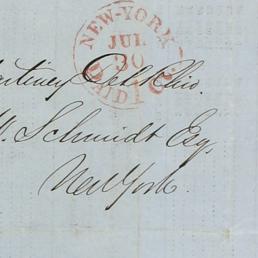 NEW-YORK
JUL
30
PAID
Martinez Del Rio.
Schmidt Esq,
New York.